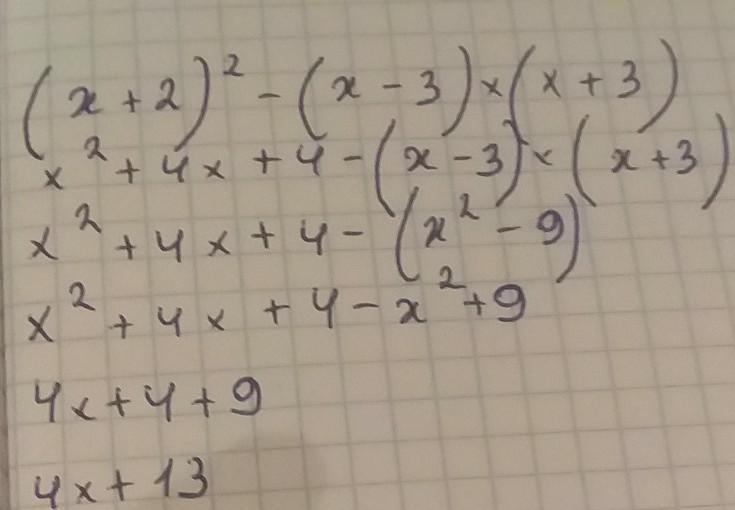 (x + 2)² - (x - 3) × (x + 3)
x² + 4x + 4 - (x - 3) × (x + 3)
x² + 4x + 4 - (x² - 9)
x² + 4x + 4 - x² + 9
4x + 4 + 9
4x + 13